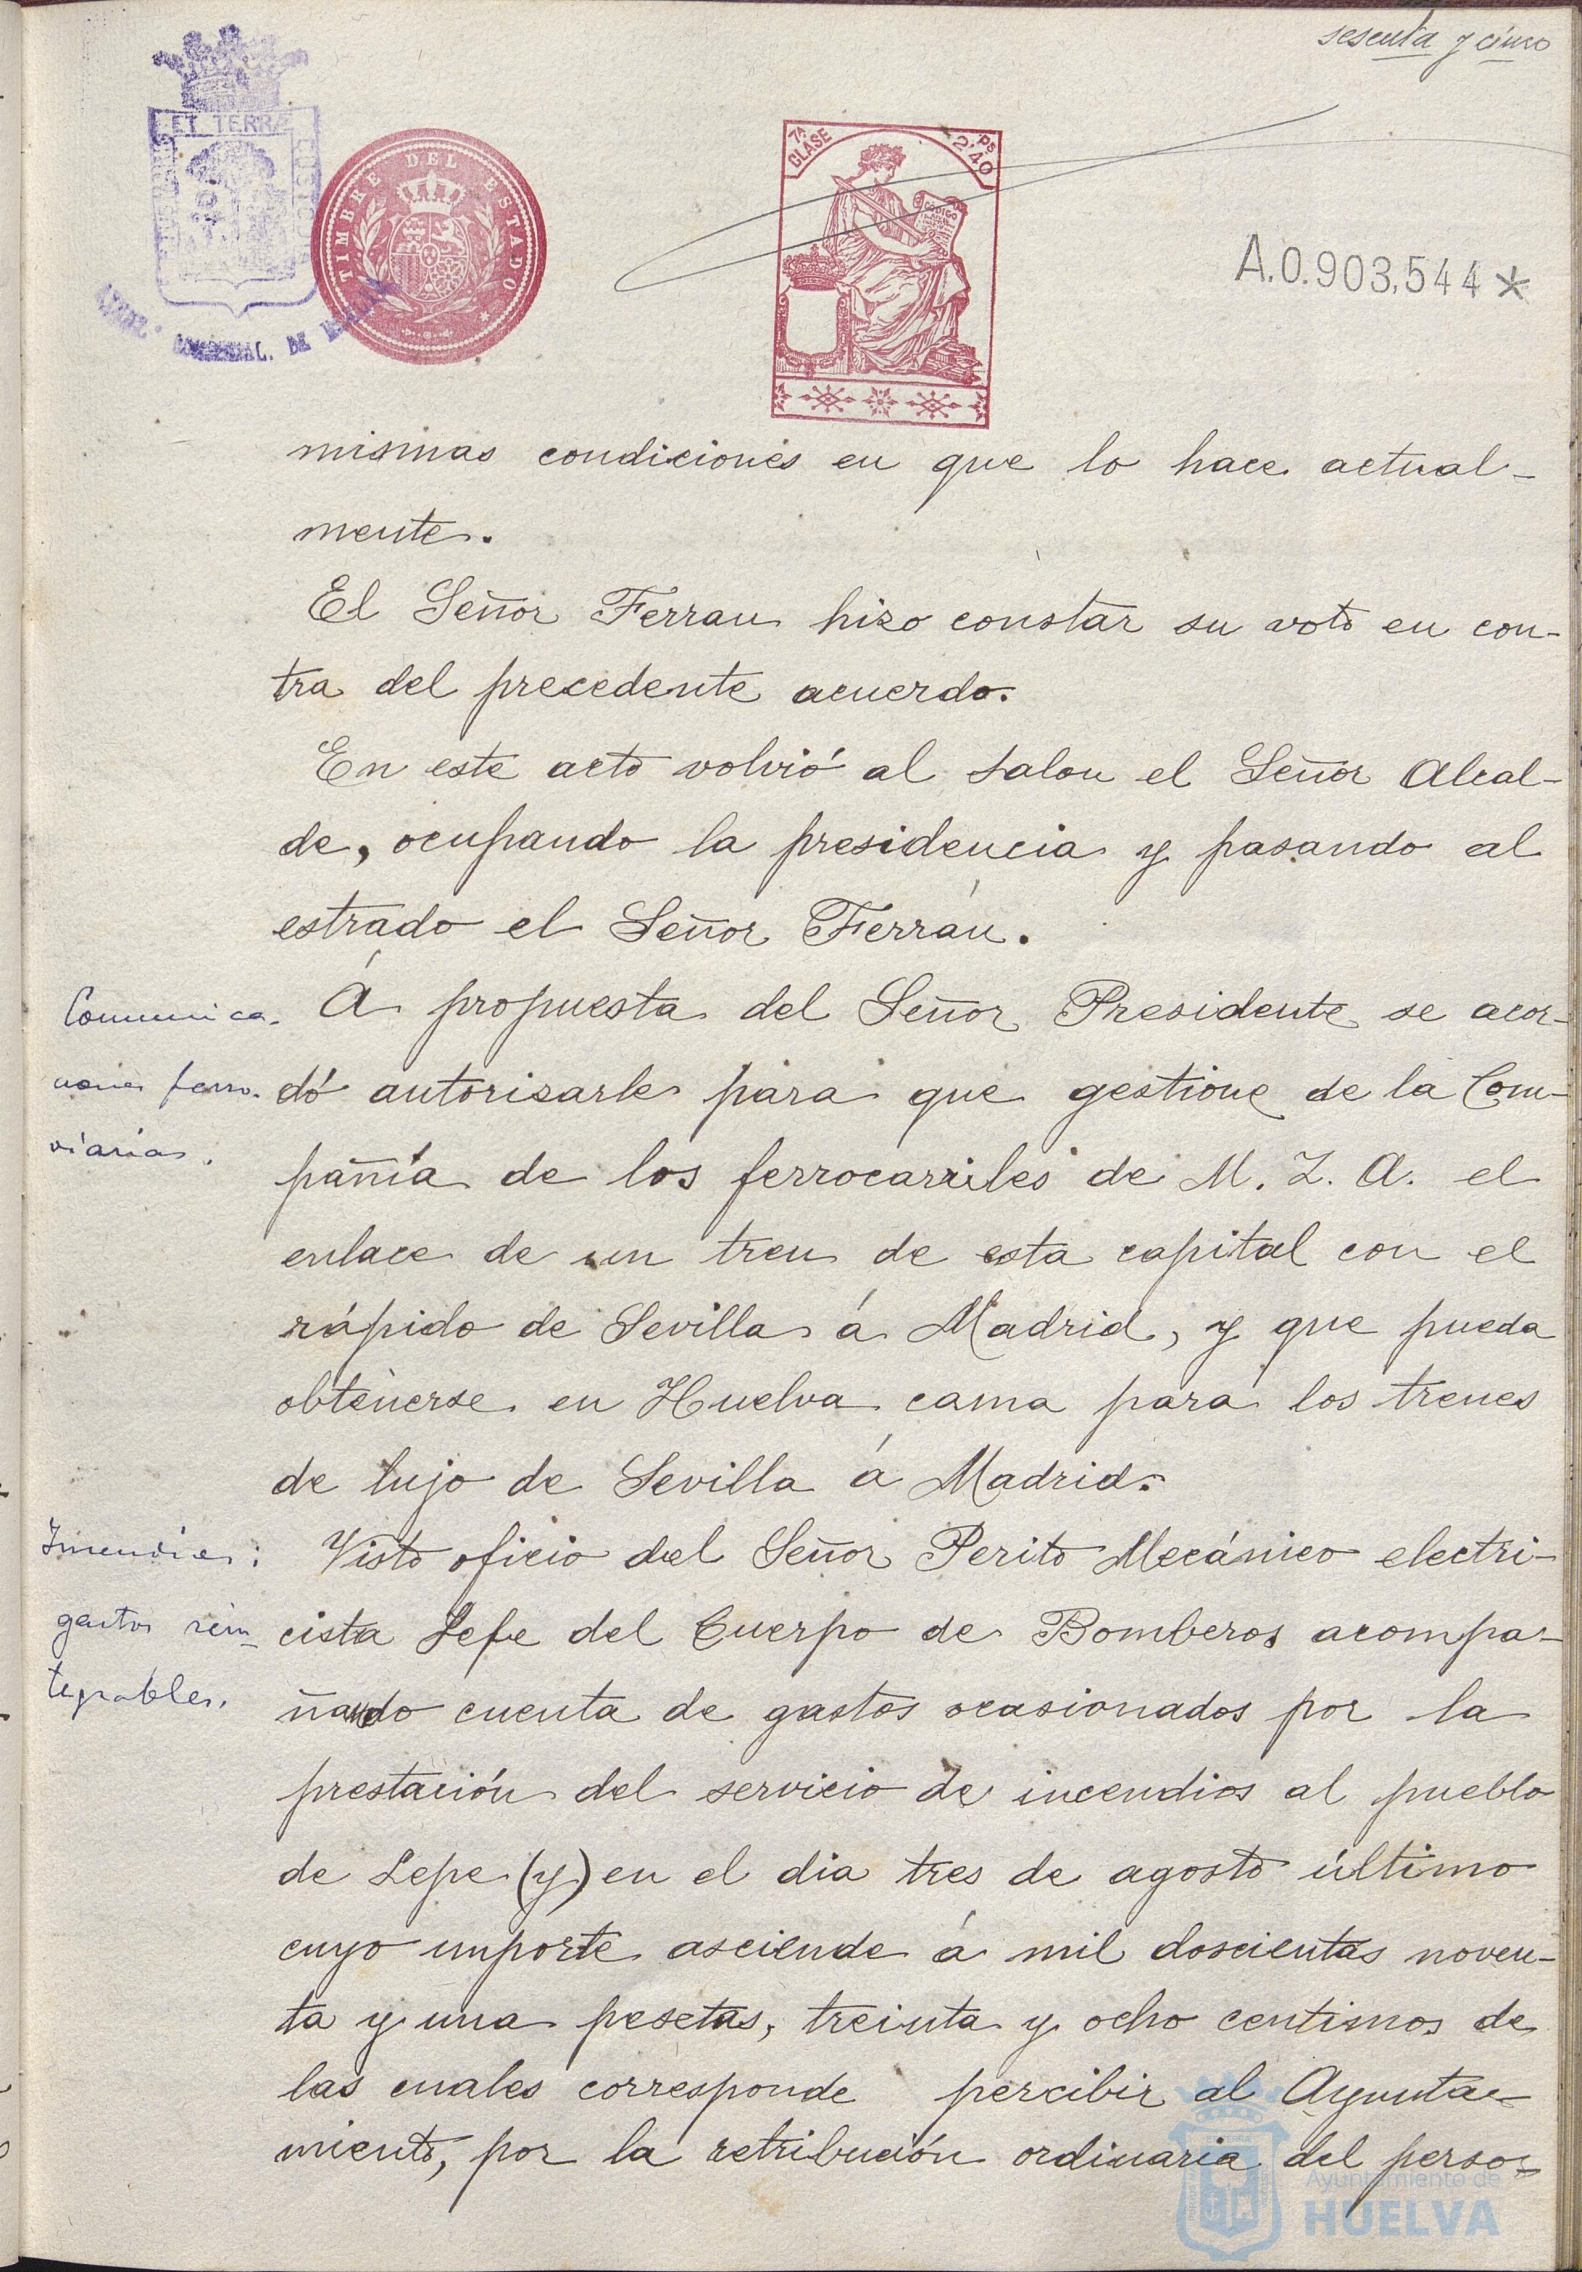 sesenta y cinco
ET TERRÆ
TIMBRE DEL ESTADO
7ª CLASE
2'40 Ps
CODIGO
A.0.903,544 *
mismas condiciones en que lo hace actual-
mente.
El Señor Ferran hizo constar su voto en con-
tra del precedente acuerdo.
En este acto volvió al salon el Señor Alcal-
de, ocupando la presidencia y pasando al
estrado el Señor Ferrán.
Comunica-
ciones ferro-
viarias.
Á propuesta del Señor Presidente se acor-
dó autorizarle para que gestione de la Com-
pañía de los ferrocarriles de M. Z. A. el
enlace de un tren de esta capital con el
rápido de Sevilla á Madrid, y que pueda
obtenerse en Huelva cama para los trenes
de lujo de Sevilla á Madrid.
Incendios:
gastos rein-
tegrables.
Visto oficio del Señor Perito Mecánico electri-
cista Jefe del Cuerpo de Bomberos acompa-
ñando cuenta de gastos ocasionados por la
prestación del servicio de incendios al pueblo
de Lepe (y) en el dia tres de agosto último
cuyo importe asciende á mil doscientas noven-
ta y una pesetas, treinta y ocho centimos de
las cuales corresponde percibir al Ayunta-
miento, por la retribución ordinaria del perso-
Ayuntamiento de
HUELVA